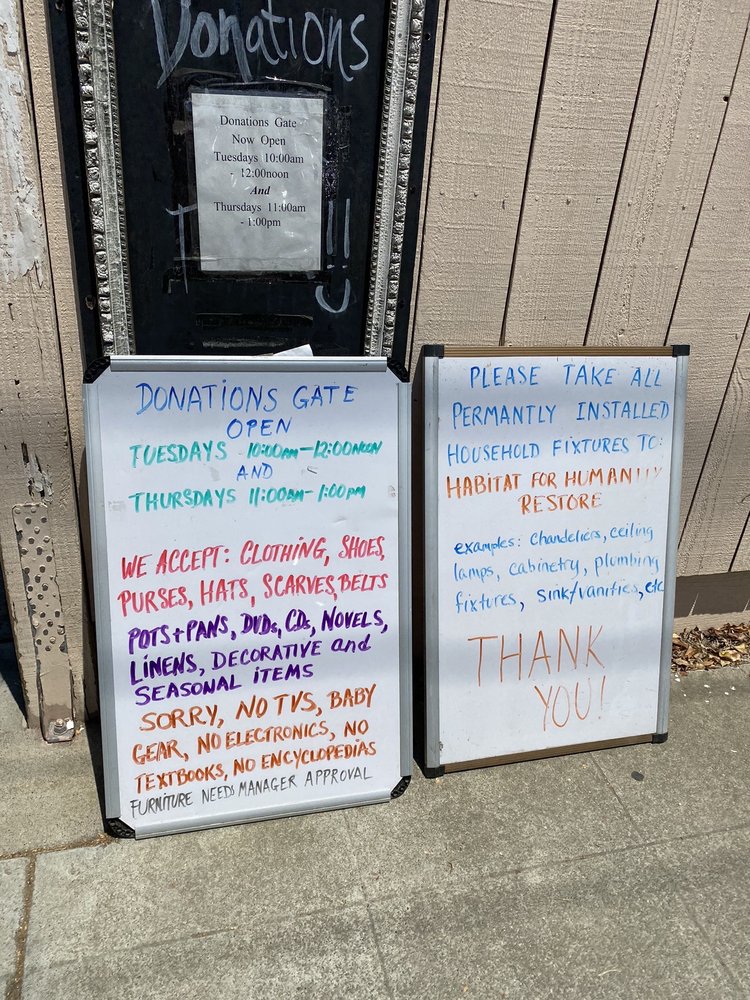 Donations
Donations Gate
Now Open
Tuesdays 10:00am
- 12:00noon
And
Thursdays 11:00am
- 1:00pm
!!
DONATIONS GATE
OPEN
TUESDAYS 10:00AM-12:00NOON
AND
THURSDAYS 11:00AM-1:00PM
WE ACCEPT: CLOTHING, SHOES,
PURSES, HATS, SCARVES, BELTS
POTS+PANS, DVDs, CDs, NOVELS,
LINENS, DECORATIVE and
SEASONAL ITEMS
SORRY, NO TVS, BABY
GEAR, NO ELECTRONICS, NO
TEXTBOOKS, NO ENCYCLOPEDIAS
FURNITURE NEEDS MANAGER APPROVAL
PLEASE TAKE ALL
PERMANTLY INSTALLED
HOUSEHOLD FIXTURES TO:
HABITAT FOR HUMANITY
RESTORE
examples: chandeliers, ceiling
lamps, cabinetry, plumbing
fixtures, sink/vanities, etc
THANK
YOU!